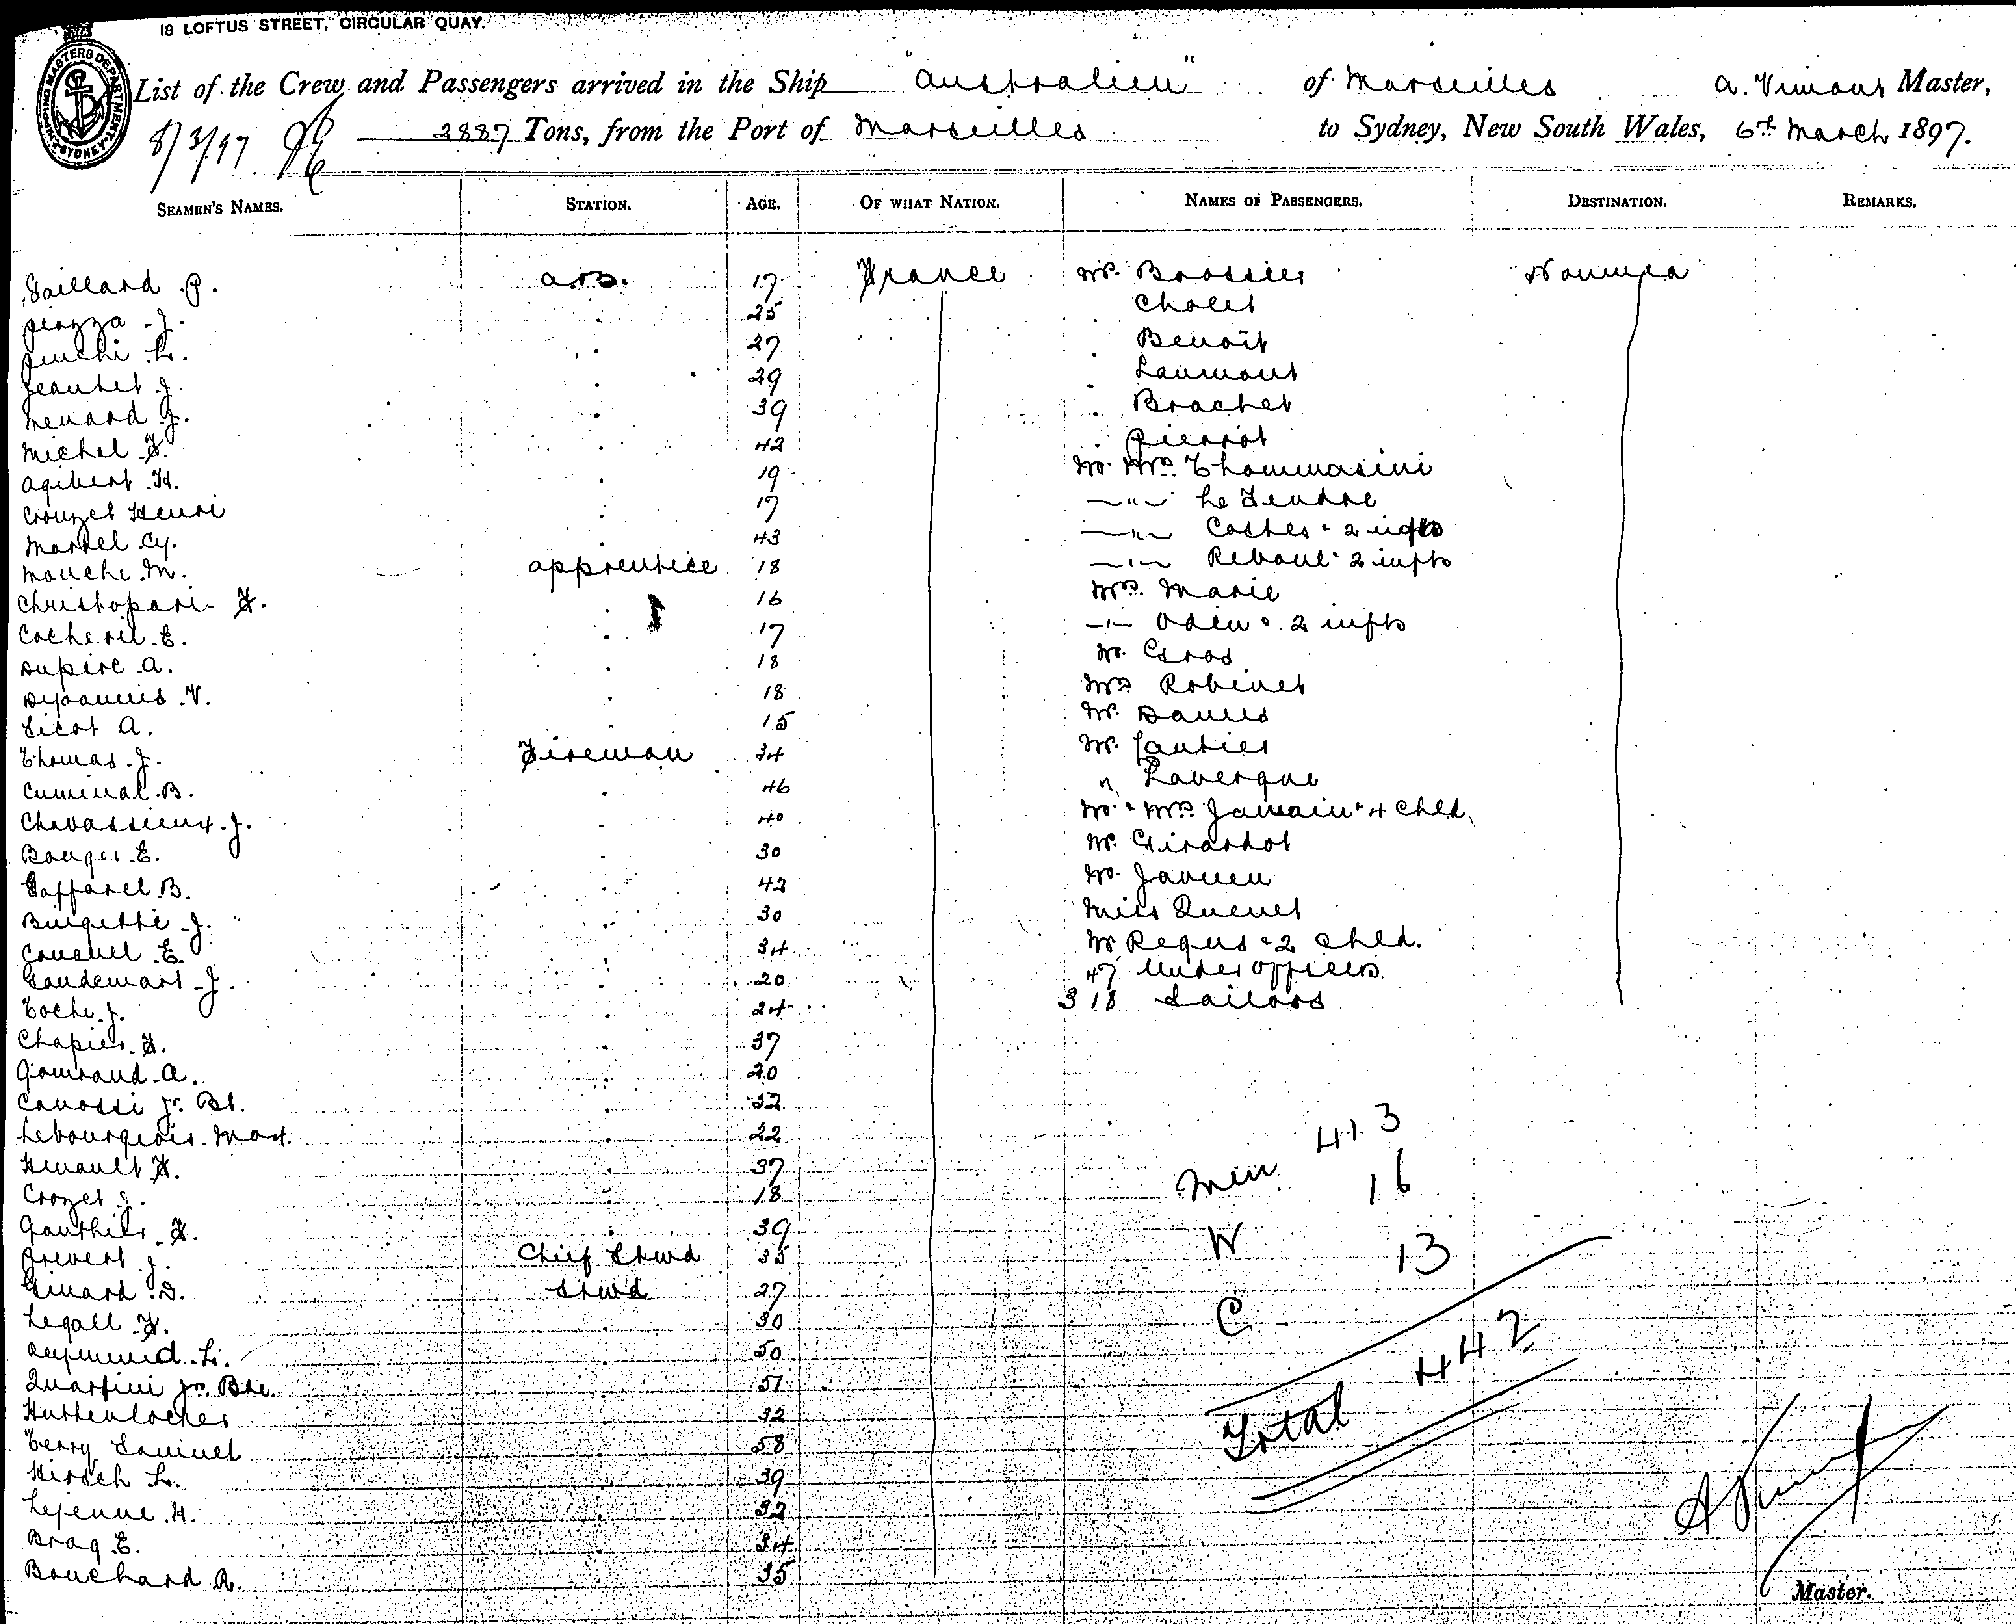 18 LOFTUS STREET, CIRCULAR QUAY.
SHIPPING MASTERS DEPARTMENT SYDNEY
List of the Crew and Passengers arrived in the Ship "Australien" of Marseilles A. Vimont Master,
8/3/97 2887 Tons, from the Port of Marseilles to Sydney, New South Wales, 6th March 1897.
SEAMEN'S NAMES. STATION. AGE. OF WHAT NATION. NAMES OF PASSENGERS. DESTINATION. REMARKS.
Gaillard P. A.B. 17 France Mr. Brossier Noumea
Piazza J. 25 Cholet
L. 27 Benoit
Jeantet J. 29 Laumont
Menard J. 39 Brachet
Michel F. 42 Pierrot
Agibert H. 19 Mr. Mrs. Thommasini
Crouzet Henri 17 —"— Le Tendre
Martel Cy. 43 —"— Costes & 2 infts
Mouche M. apprentice 18 —"— Reboul & 2 infts
Christopari F. 16 Mrs. Marie
Cotheril E. 17 —"— Odin & 2 infts
Dupire A. 18 Mr. Gros
V. 18 Mrs Robinet
Sicot A. 15 Mr. Danes
Thomas J. Fireman 34 Mr. Cautier
Cuminal B. 46 " Lavergne
Chavassieux J. 40 Mr. & Mrs. Jamain & 4 Chld.
Bouges E. 30 Mr. Girardot
Gaffarel B. 42 Mr. Jannen
J. 30 Miss Quenet
E. 34 Mr Regus & 2 Chld.
Gaudemart J. 20 47 Under officers
Toche J. 24 318 Sailors
Chapier F. 37
Gomraud A. 20
Canossi Jn. Bt. 32
Lebourgeois Max. 22
Henault F. 37
Crozet J. 18
Gauthier F. 39
Grevert J. Chief Stwd 35
Guiard D. Stwd 27
Legall F. 30
L. 50
Quarfini Jn. Bte. 51
Huttenlocher 32
Terry Samuel 58
Hirsch L. 39
Lejeune H. 32
Braq E. 34
Bouchard A. 35
Men 413
W 16
C 13
Total 442
Master.